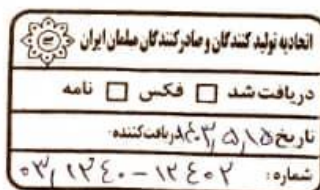 اتحادیه تولید کنندگان و صادر کنندگان مبلمان ایران
دریافت شد □ فکس □ نامه
تاریخ ۱۴۰۳,۵,۱۵ دریافت‌کننده:
شماره: ۰۳,۱۲۴۰-۱۲۴۰۲